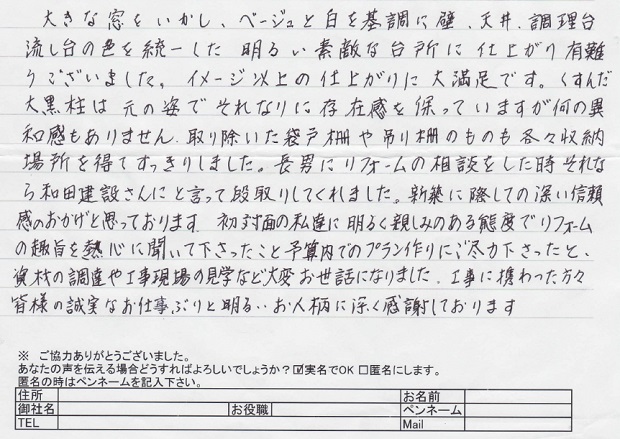 大きな窓をいかし、ベージュと白を基調に壁、天井、調理台
流し台の色を統一した 明るい素敵な台所に仕上がり有難
うございました。イメージ以上の仕上がりに大満足です。くすんだ
大黒柱は元の姿でそれなりに存在感を保っていますが何の異
和感もありません。取り除いた袋戸棚や吊り棚のものも各々収納
場所を得てすっきりしました。長男にリフォームの相談をした時それな
ら和田建設さんにと言って段取りしてくれました。新築に際しての深い信頼
感のおかげと思っております。初対面の私達に明るく親しみのある態度でリフォーム
の趣旨を熱心に聞いて下さったこと予算内でのプラン作りにご尽力下さったこと、
資材の調達や工事現場の見学など大変お世話になりました。工事に携わった方々
皆様の誠実なお仕事ぶりと明るいお人柄に深く感謝しております
※ ご協力ありがとうございました。
あなたの声を伝える場合どうすればよろしいでしょうか？☑実名でOK □匿名にします。
匿名の時はペンネームを記入下さい。
住所 お名前
御社名 お役職 ペンネーム
TEL Mail